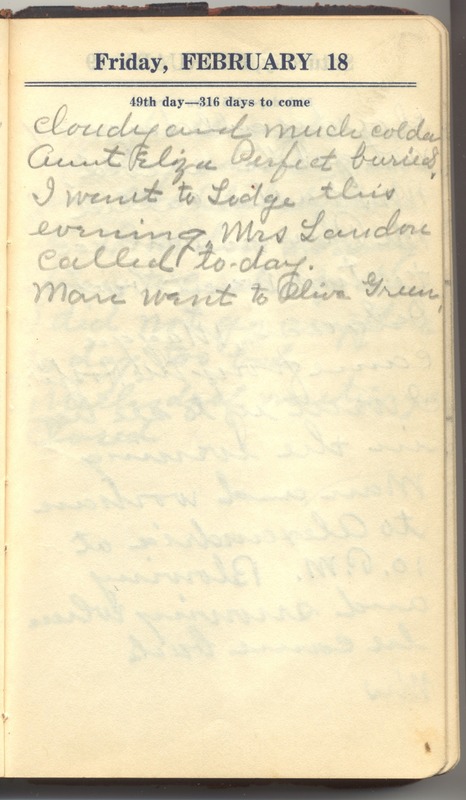 Friday, FEBRUARY 18
49th day—316 days to come
cloudy and much colder
Aunt Eliza Perfect buried,
I went to Lodge this
evening, Mrs Landon
called to-day.
went to Olive Green,